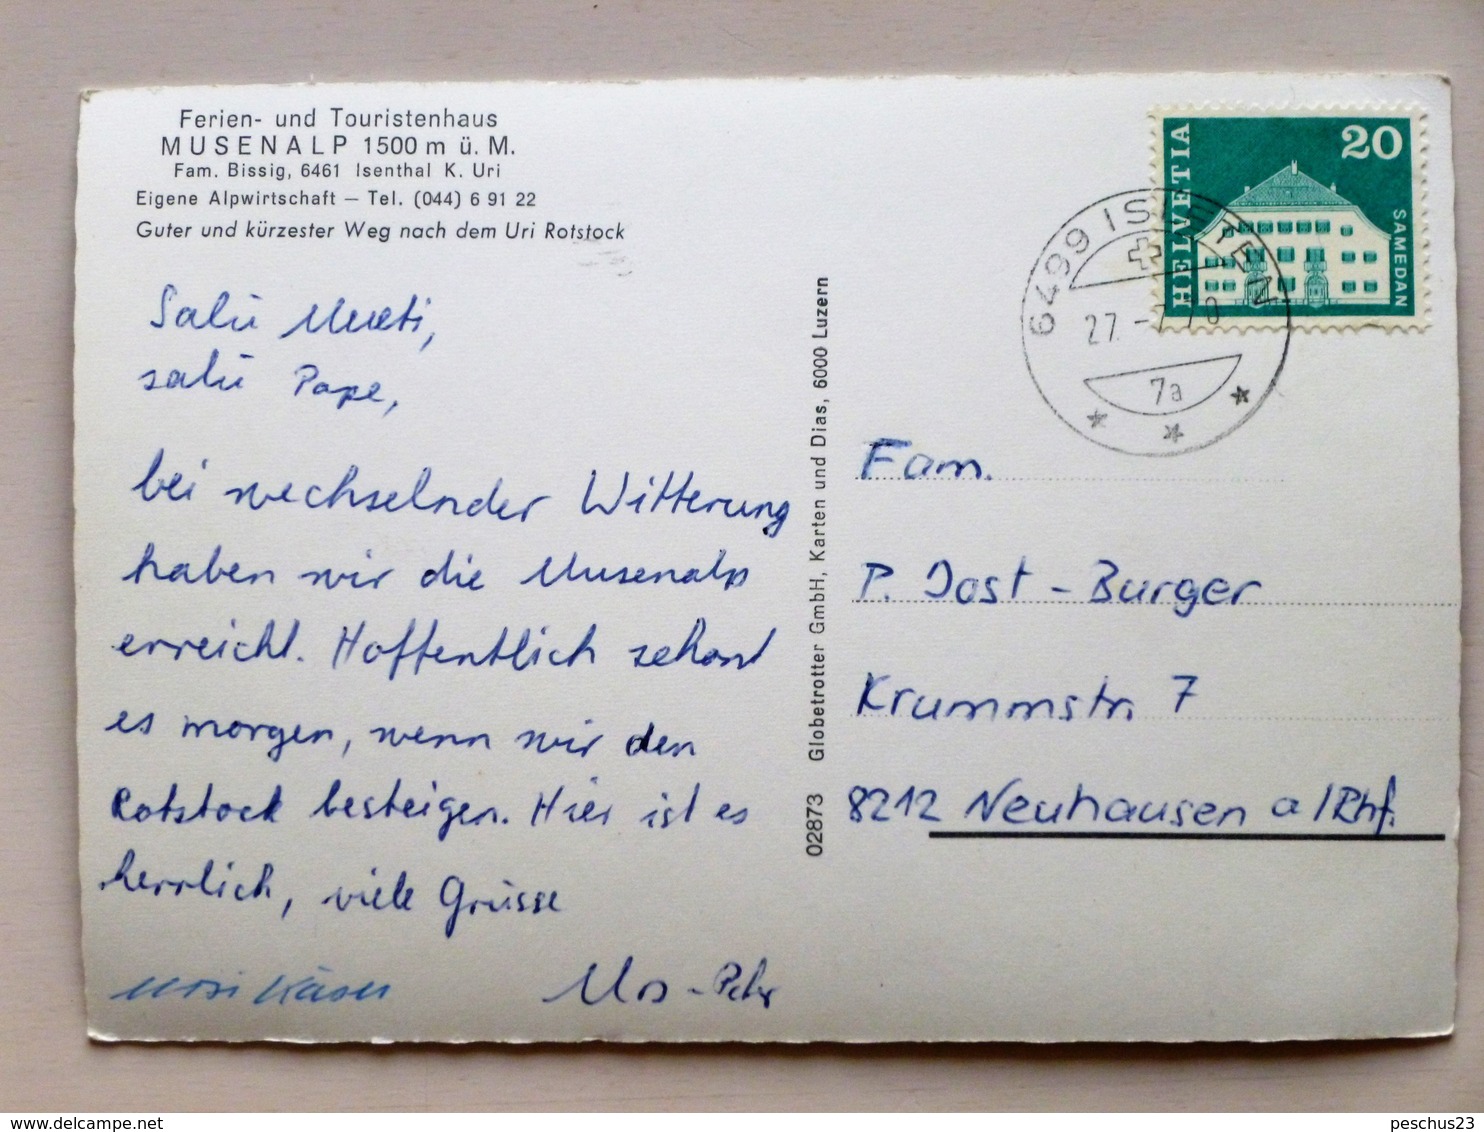 Ferien- und Touristenhaus
MUSENALP 1500 m ü. M.
Fam. Bissig, 6461 Isenthal K. Uri
Eigene Alpwirtschaft — Tel. (044) 6 91 22
Guter und kürzester Weg nach dem Uri Rotstock
Salü Mueti,
salü Pape,
bei wechselnder Witterung
haben wir die Musenalp
erreicht. Hoffentlich schont
es morgen, wenn wir den
Rotstock besteigen. Hier ist es
herrlich, viele Grüsse
Urs-Peter
02873 Globetrotter GmbH, Karten und Dias, 6000 Luzern
HELVETIA
20
SAMEDAN
6499 ISLETEN
27.
7a
Fam.
P. Jost-Burger
Krummstr. 7
8212 Neuhausen a/Rhf.
peschus23